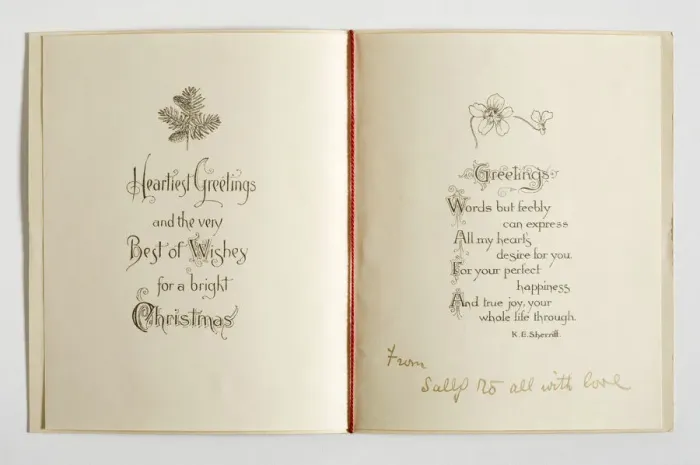 Heartiest Greetings
and the very
Best of Wishes
for a bright
Christmas
Greetings
Words but feebly
can express
All my heart's
desire for you.
For your perfect
happiness
And true joy, your
whole life through.
K.E.Sherriff.
From
Sally to all with love